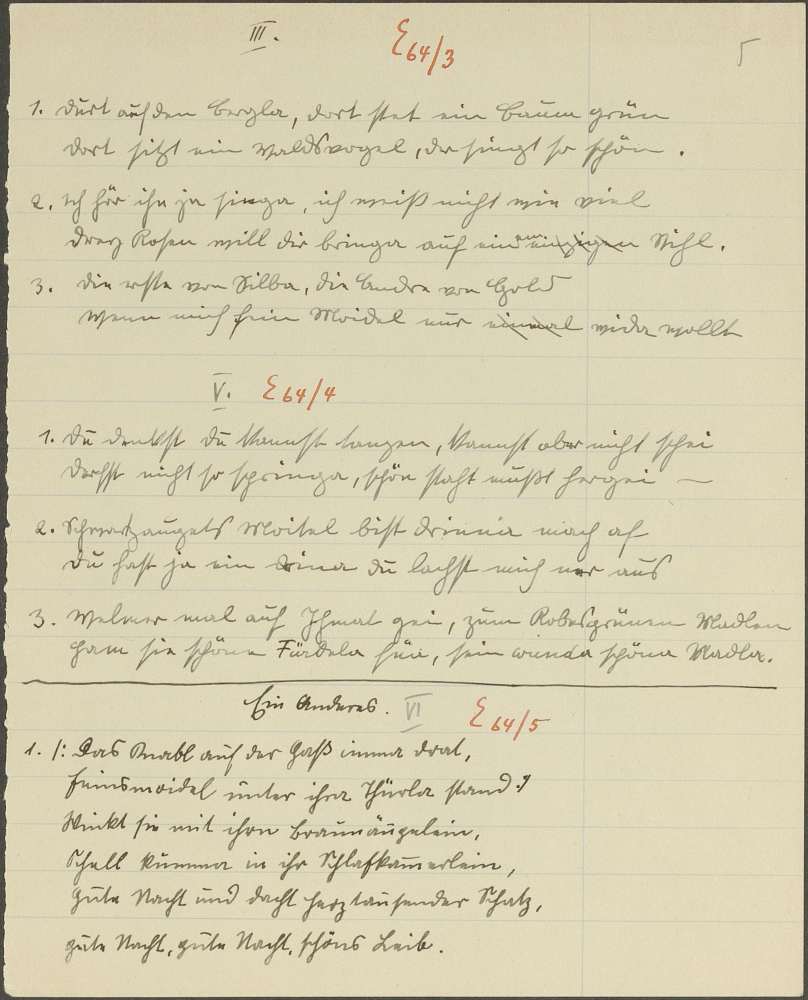 III.
E 64/3
5
1. Durt auf den Bergla, dort stet ein Baum grün
dort sitzt ein Waldsvogel, der singt so schön.
2. Ich hör ihn ja singa, ich weiß nicht wie viel
drey Rosen will dir bringa auf ein einzigen Stihl.
3. Die erste von Silba, die Andre von Gold
Wenn mich fein Moidel nur einmal wida wollt
V. E 64/4
1. Du denkst du kannst tanzen, kannst aber nicht schei
derfst nicht so springa, schön staht mußt hergei —
2. Schwarzaugets Moitel bist drinna mach af
Du hast ja ein drina du lachst mich nur aus
3. Welmer mal auf Thmat gei, zum Robesgrünen Madlen
ham sie schöne Färdela hür, sein schöna Madla.
Ein Anderes. VI
E 64/5
1. /: Das Knabl auf der Gaß imma drat,
feinsmoidel unter ihra Thürla stand :/
Winkt sie mit ihrn Braunäugelein,
Schell kumma in ihr Schlafkammerlein,
Gute Nacht und dacht herztausender Schatz,
gute Nacht, gute Nacht, schöns Leib.